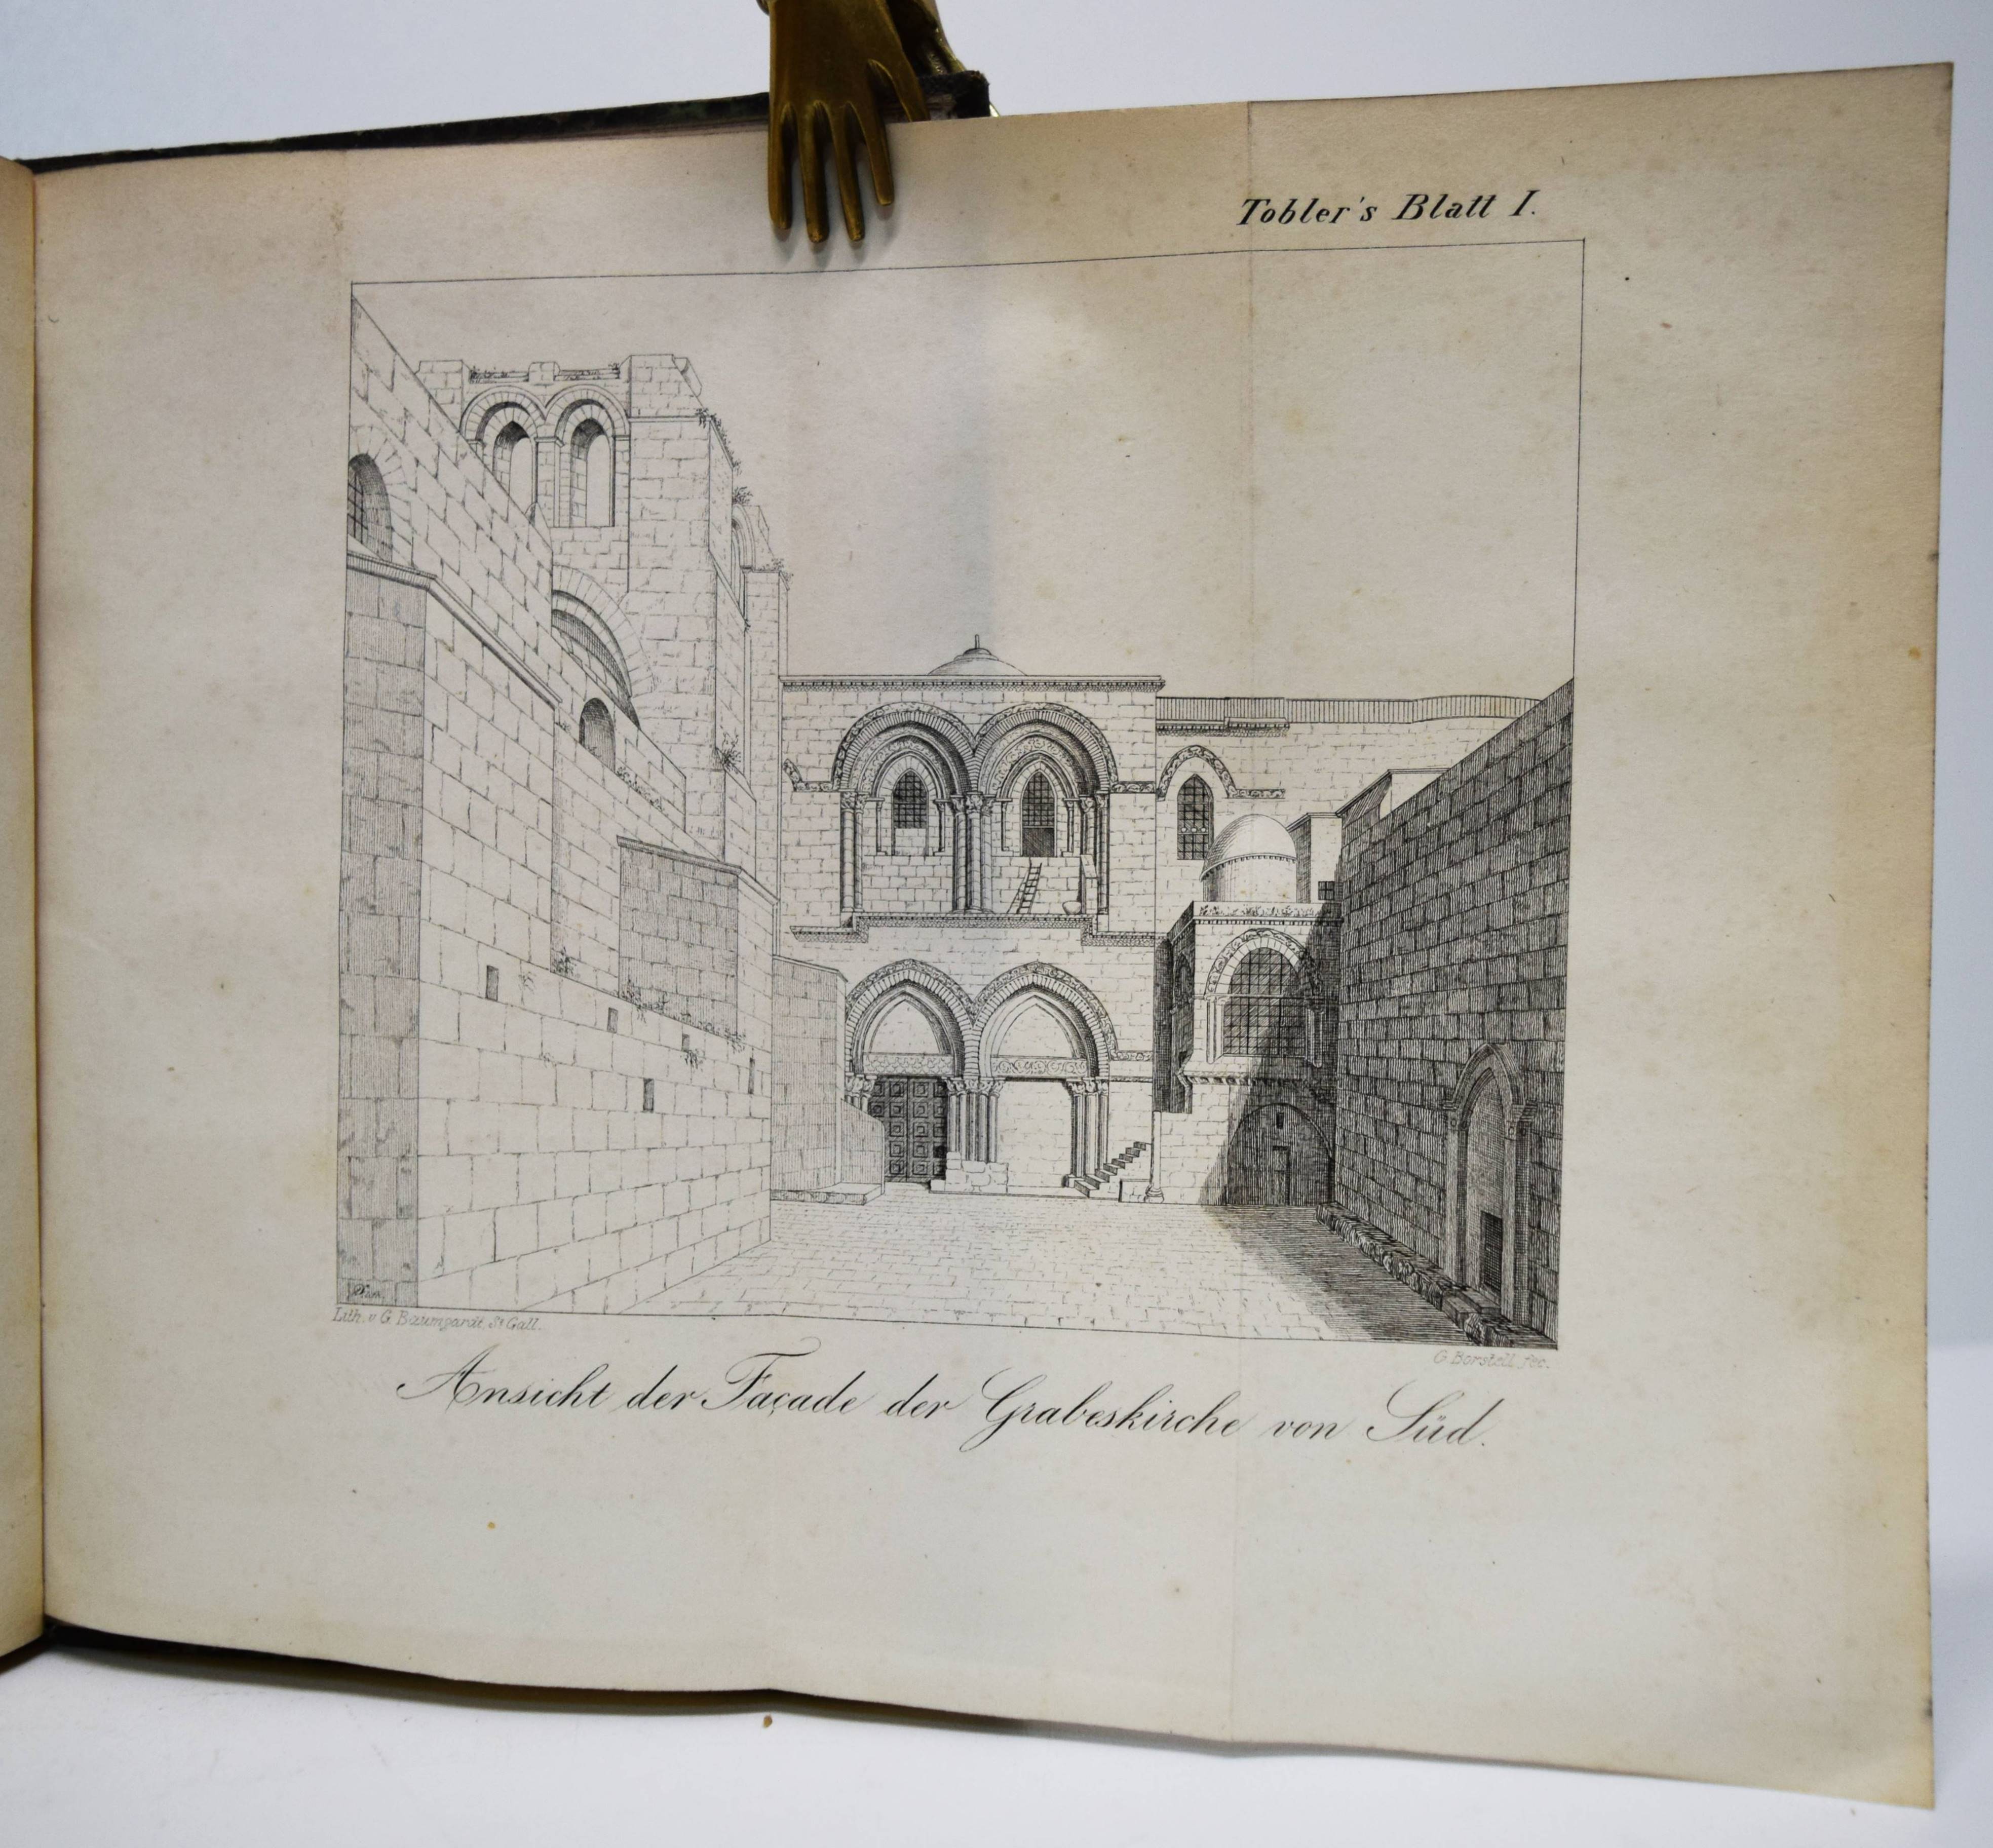 Tobler's Blatt I.
Lith. v G. Baumgardt, St Gall.
G. Borstell, fec.
Ansicht der Façade der Grabeskirche von Süd.